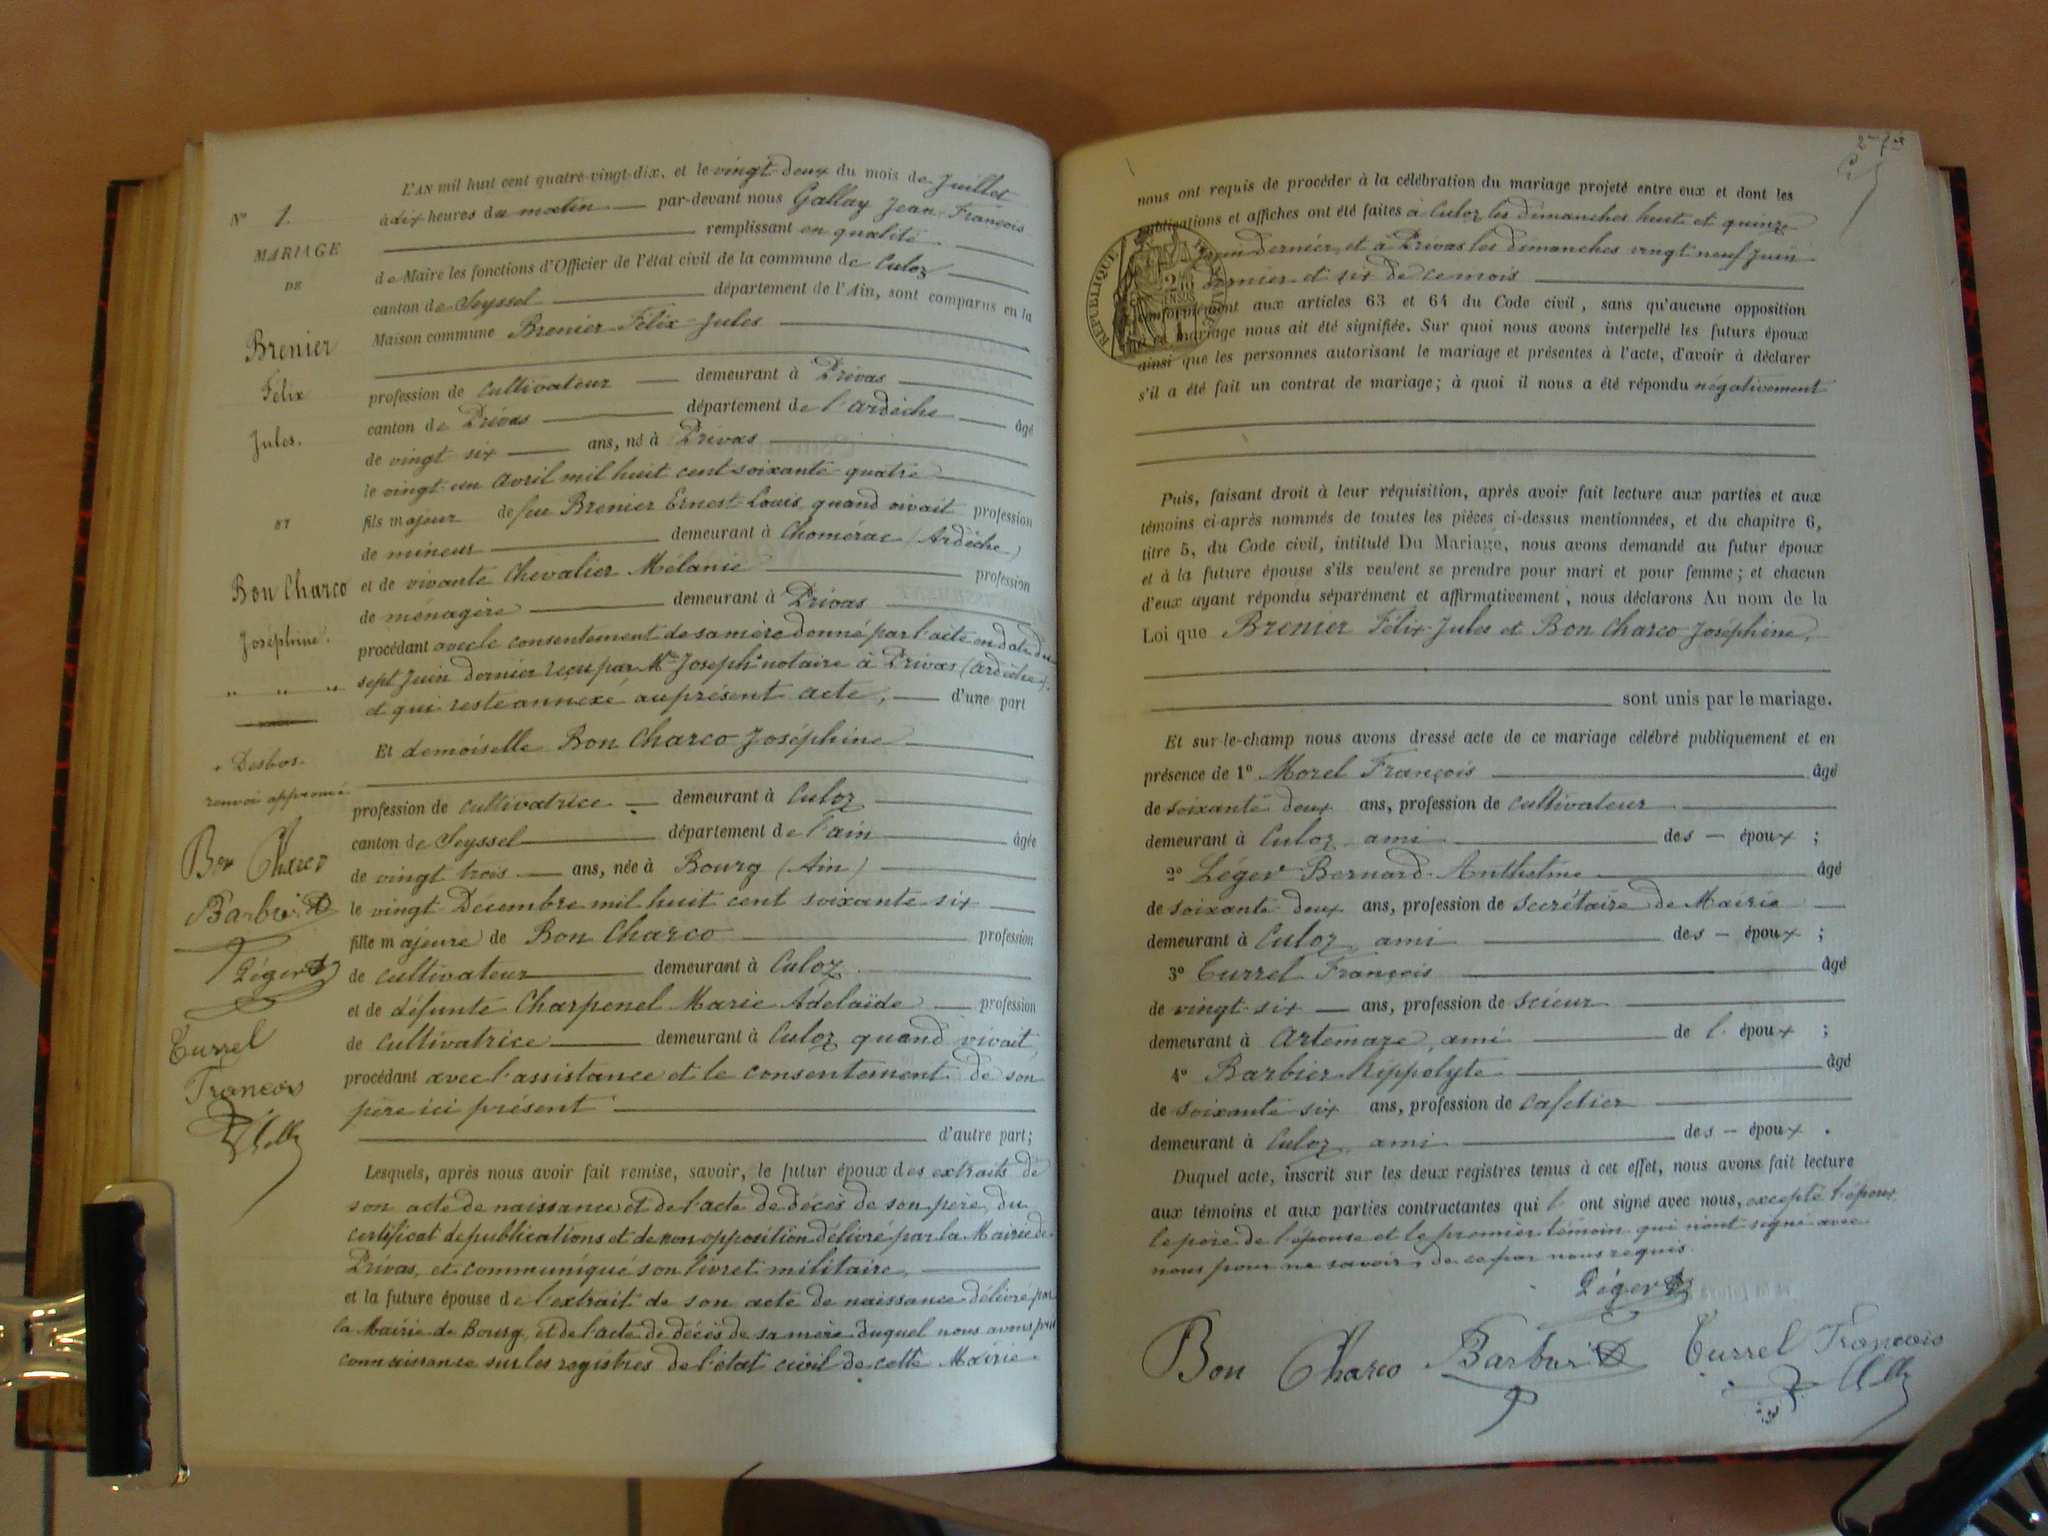 L'AN mil huit cent quatre-vingt-dix, et le vingt-deux du mois de Juillet
à dix heures du matin — par-devant nous Gallay Jean François
remplissant en qualité
de Maire les fonctions d'Officier de l'état civil de la commune de Culoz
canton de Seyssel — département de l'Ain, sont comparus en la
Maison commune Brenier Félix Jules
profession de cultivateur — demeurant à Privas
canton de Privas — département de l'Ardèche — âgé
de vingt six — ans, né à Privas
le vingt-un Avril mil huit cent soixante-quatre
fils majeur de feu Brenier Ernest-Louis, quand vivait profession
de mineur — demeurant à Chomérac (Ardèche)
et de vivante Chevalier Mélanie — profession
de ménagère — demeurant à Privas
procédant avec le consentement de sa mère donné par l'acte en date du
sept Juin dernier reçu par Me Joseph " notaire à Privas (Ardèche).
et qui reste annexé au présent acte, — d'une part
Et demoiselle Bon Charco Joséphine
profession de cultivatrice — demeurant à Culoz
canton de Seyssel — département de l'ain — âgée
de vingt trois — ans, née à Bourg (Ain)
le vingt Décembre mil huit cent soixante six
fille majeure de Bon Charco — profession
de cultivateur — demeurant à Culoz
et de défunte Charpenel Marie Adélaïde — profession
de cultivatrice — demeurant à Culoz quand vivait,
procédant avec l'assistance et le consentement de son
père ici présent
d'autre part;
Lesquels, après nous avoir fait remise, savoir, le futur époux des extraits de
son acte de naissance et de l'acte de décès de son père, du
certificat de publications et de non opposition délivré par la Mairie de
Privas, et communiqué son livret militaire,
et la future épouse de l'extrait de son acte de naissance délivré par
la Mairie de Bourg, et de l'acte de décès de sa mère duquel nous avons pris
connaissance sur les registres de l'état civil de cette Mairie.
N° 1.
MARIAGE
DE
Brenier
Félix
Jules.
ET
Bon Charco
Joséphine.
" " "
" Desbos.
renvoi approuvé
Bon Charco
Barbier
Léger
Turrel
François
nous ont requis de procéder à la célébration du mariage projeté entre eux et dont les
publications et affiches ont été faites à Culoz les dimanches huit et quinze
Juin dernier, et à Privas les dimanches vingt neuf Juin
dernier et six de ce mois
conformément aux articles 63 et 64 du Code civil, sans qu'aucune opposition
mariage nous ait été signifiée. Sur quoi nous avons interpellé les futurs époux
ainsi que les personnes autorisant le mariage et présentes à l'acte, d'avoir à déclarer
s'il a été fait un contrat de mariage; à quoi il nous a été répondu négativement
RÉPUBLIQUE
Puis, faisant droit à leur réquisition, après avoir fait lecture aux parties et aux
témoins ci-après nommés de toutes les pièces ci-dessus mentionnées, et du chapitre 6,
titre 5, du Code civil, intitulé Du Mariage, nous avons demandé au futur époux
et à la future épouse s'ils veulent se prendre pour mari et pour femme; et chacun
d'eux ayant répondu séparément et affirmativement, nous déclarons Au nom de la
Loi que Brenier Félix-Jules et Bon Charco Joséphine,
sont unis par le mariage.
Et sur-le-champ nous avons dressé acte de ce mariage célébré publiquement et en
présence de 1° Morel François — âgé
de soixante deux ans, profession de cultivateur
demeurant à Culoz, ami — des — époux ;
2° Léger Bernard-Anthelme — âgé
de soixante deux ans, profession de Secrétaire de Mairie
demeurant à Culoz, ami — des — époux ;
3° Turrel François — âgé
de vingt six — ans, profession de scieur
demeurant à Artemare, ami — de l'époux ;
4° Barbier Hippolyte — âgé
de soixante six ans, profession de cafetier
demeurant à Culoz, ami — des — époux .
Duquel acte, inscrit sur les deux registres tenus à cet effet, nous avons fait lecture
aux témoins et aux parties contractantes qui l' ont signé avec nous, excepté l'époux,
le père de l'épouse et le premier témoin qui n'ont signé avec
nous pour ne savoir, de ce par nous requis.
Léger
Bon Charco Barbier Turrel François